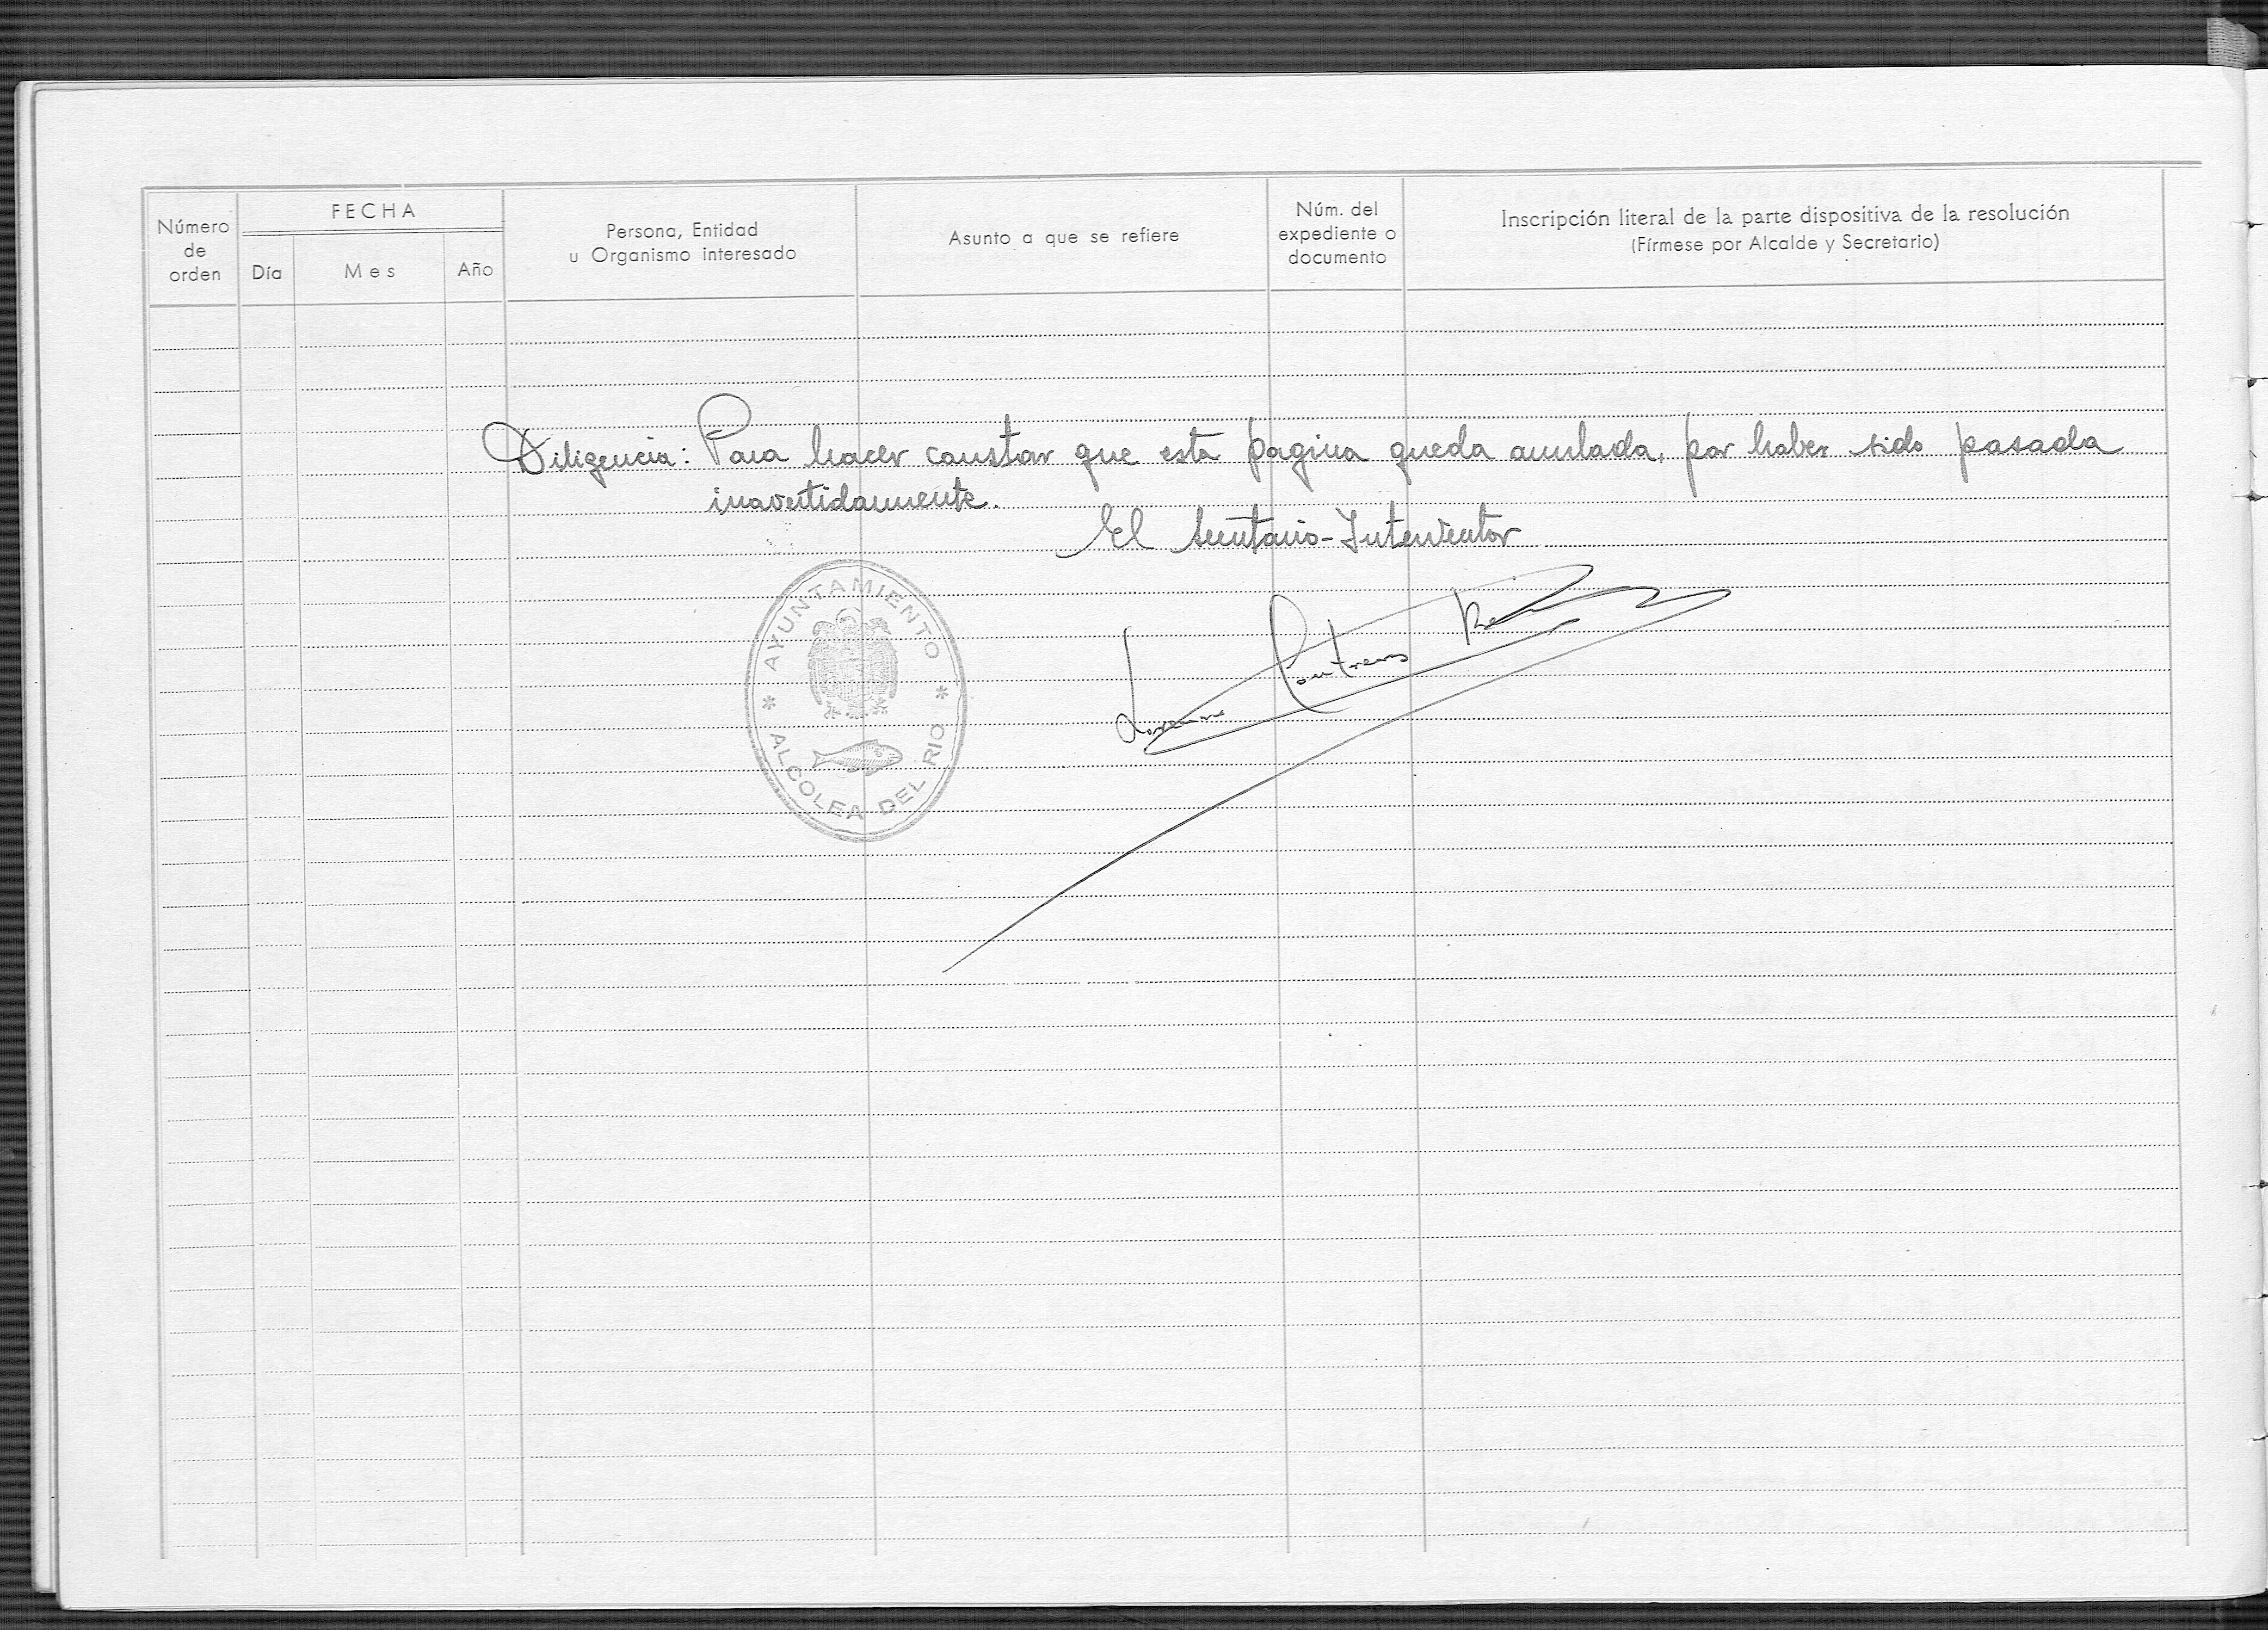 Número de orden
FECHA
Día
Mes
Año
Persona, Entidad
u Organismo interesado
Asunto a que se refiere
Núm. del
expediente o
documento
Inscripción literal de la parte dispositiva de la resolución
(Fírmese por Alcalde y Secretario)
Diligencia: Para hacer constar que esta pagina queda anulada, por haber sido pasada
inavertidamente.
El Secretario-Interventor
AYUNTAMIENTO
ALCOLEA DEL RIO
Contreras